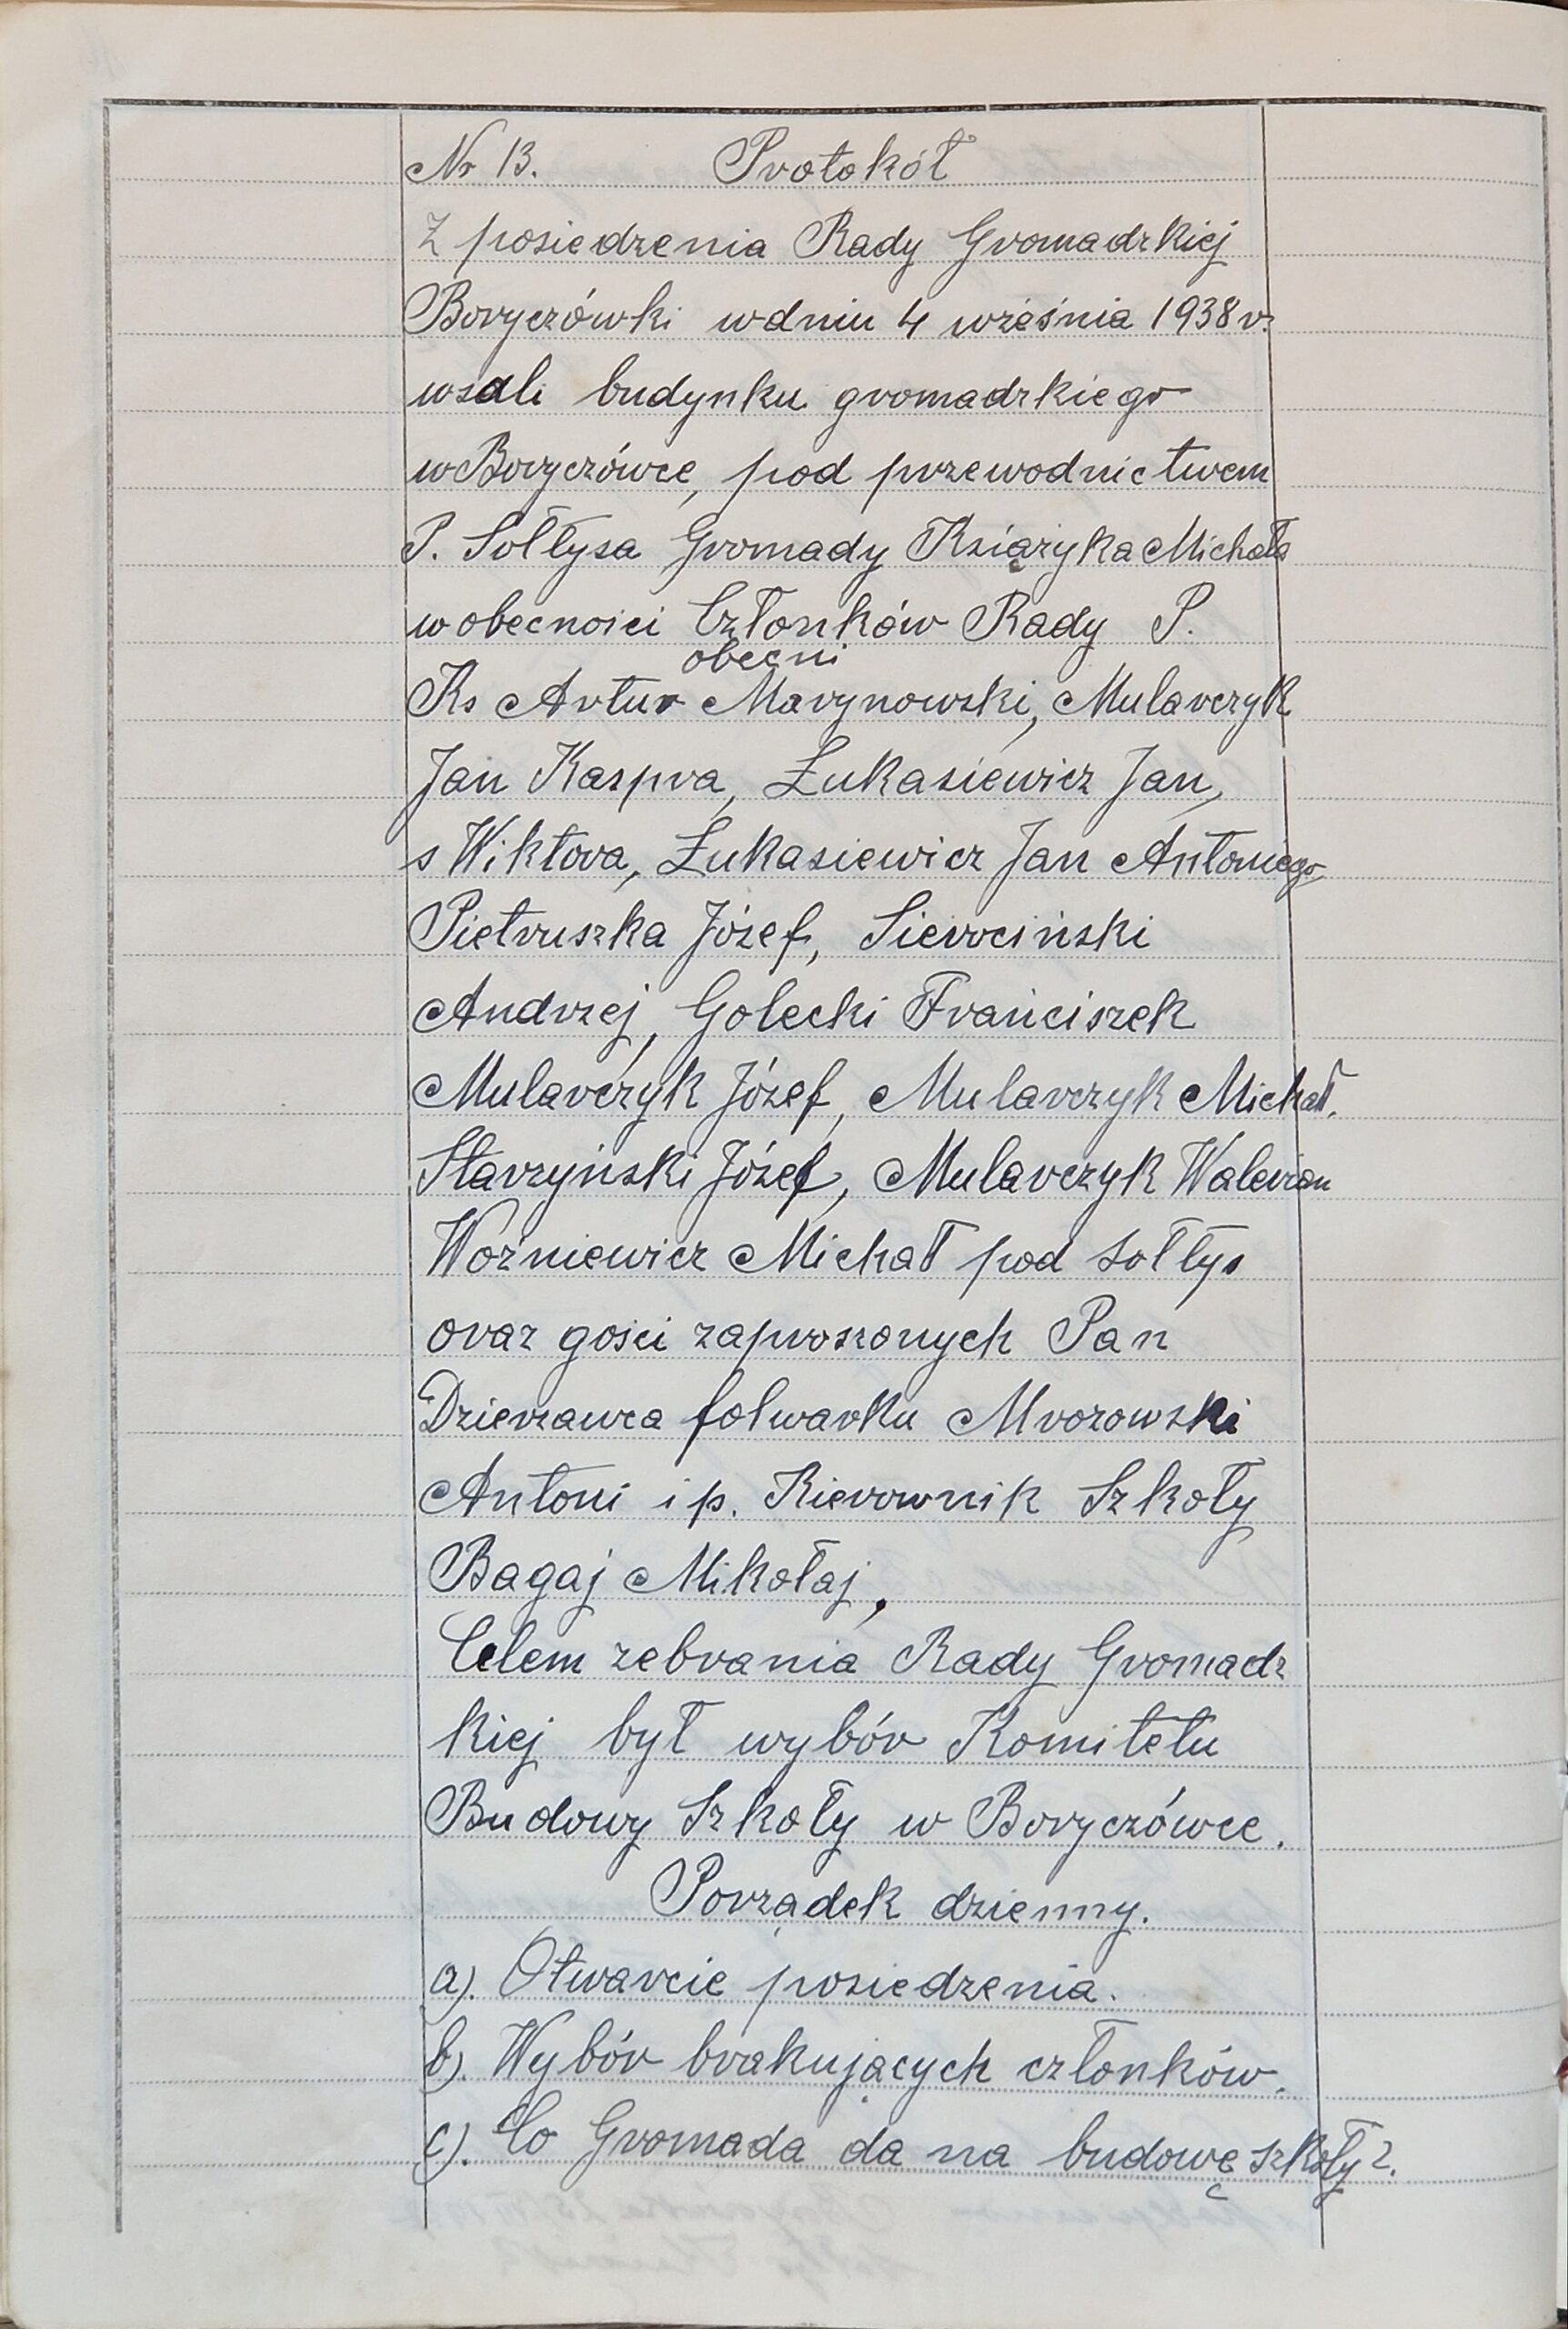 Nr 13. Protokół
Z posiedzenia Rady Gromadzkiej
Boryczówki wdniu 4 wześnia 1938 r.
wsali budynku gromadzkiego
w Boryczówce, pod przewodnictwem
P. Sołtysa Gromady Książyka Michała
w obecności Członków Rady P.
obecni
Ks Artur Marynowski, Mularczyk
Jan Kaspra, Łukasiewicz Jan,
s Wiktora, Łukasiewicz Jan Antoniego,
Pietruszka Józef, Sierociński
Andrzej, Golecki Franciszek
Mularczyk Józef, Mularczyk Michał.
Starzyński Józef, Mularczyk Walerian
Woźniewicz Michał pod sołtys
oraz gości zaproszonych Pan
Dzierzawca folwarku Mrozowski
Antoni i p. Kierownik Szkoły
Bagaj Mikołaj,
Celem zebrania Rady Gromadz
kiej był wybór Komitetu
Budowy Szkoły w Boryczówce.
Porządek dzienny.
a). Otwarcie posiedzenia.
b). Wybór brakujących członków.
c). Co Gromada da na budowę szkoły?.